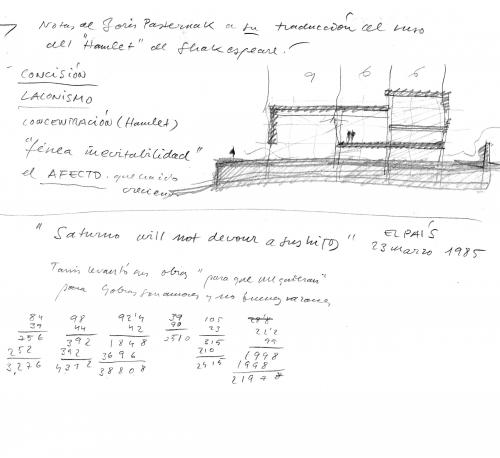 → Notas de Boris Pasternak a su traducción al ruso
del "Hamlet" de Shakespeare.
CONCISIÓN
LACONISMO
CONCENTRACIÓN (Hamlet)
"férrea inevitabilidad"
el AFECTO
creciente
9 6 6
"Saturno will not devour a sus hi(j)os" EL PAÍS
23 marzo 1985
levantó sus obras "para que me quieran"
para y no buenas razones
84 98 92'4 39 105
39 44 42 90 23 22'2
756 392 1848 3510 315 99
252 392 3696 210 1998
3,276 4312 38808 2415 1998
21978